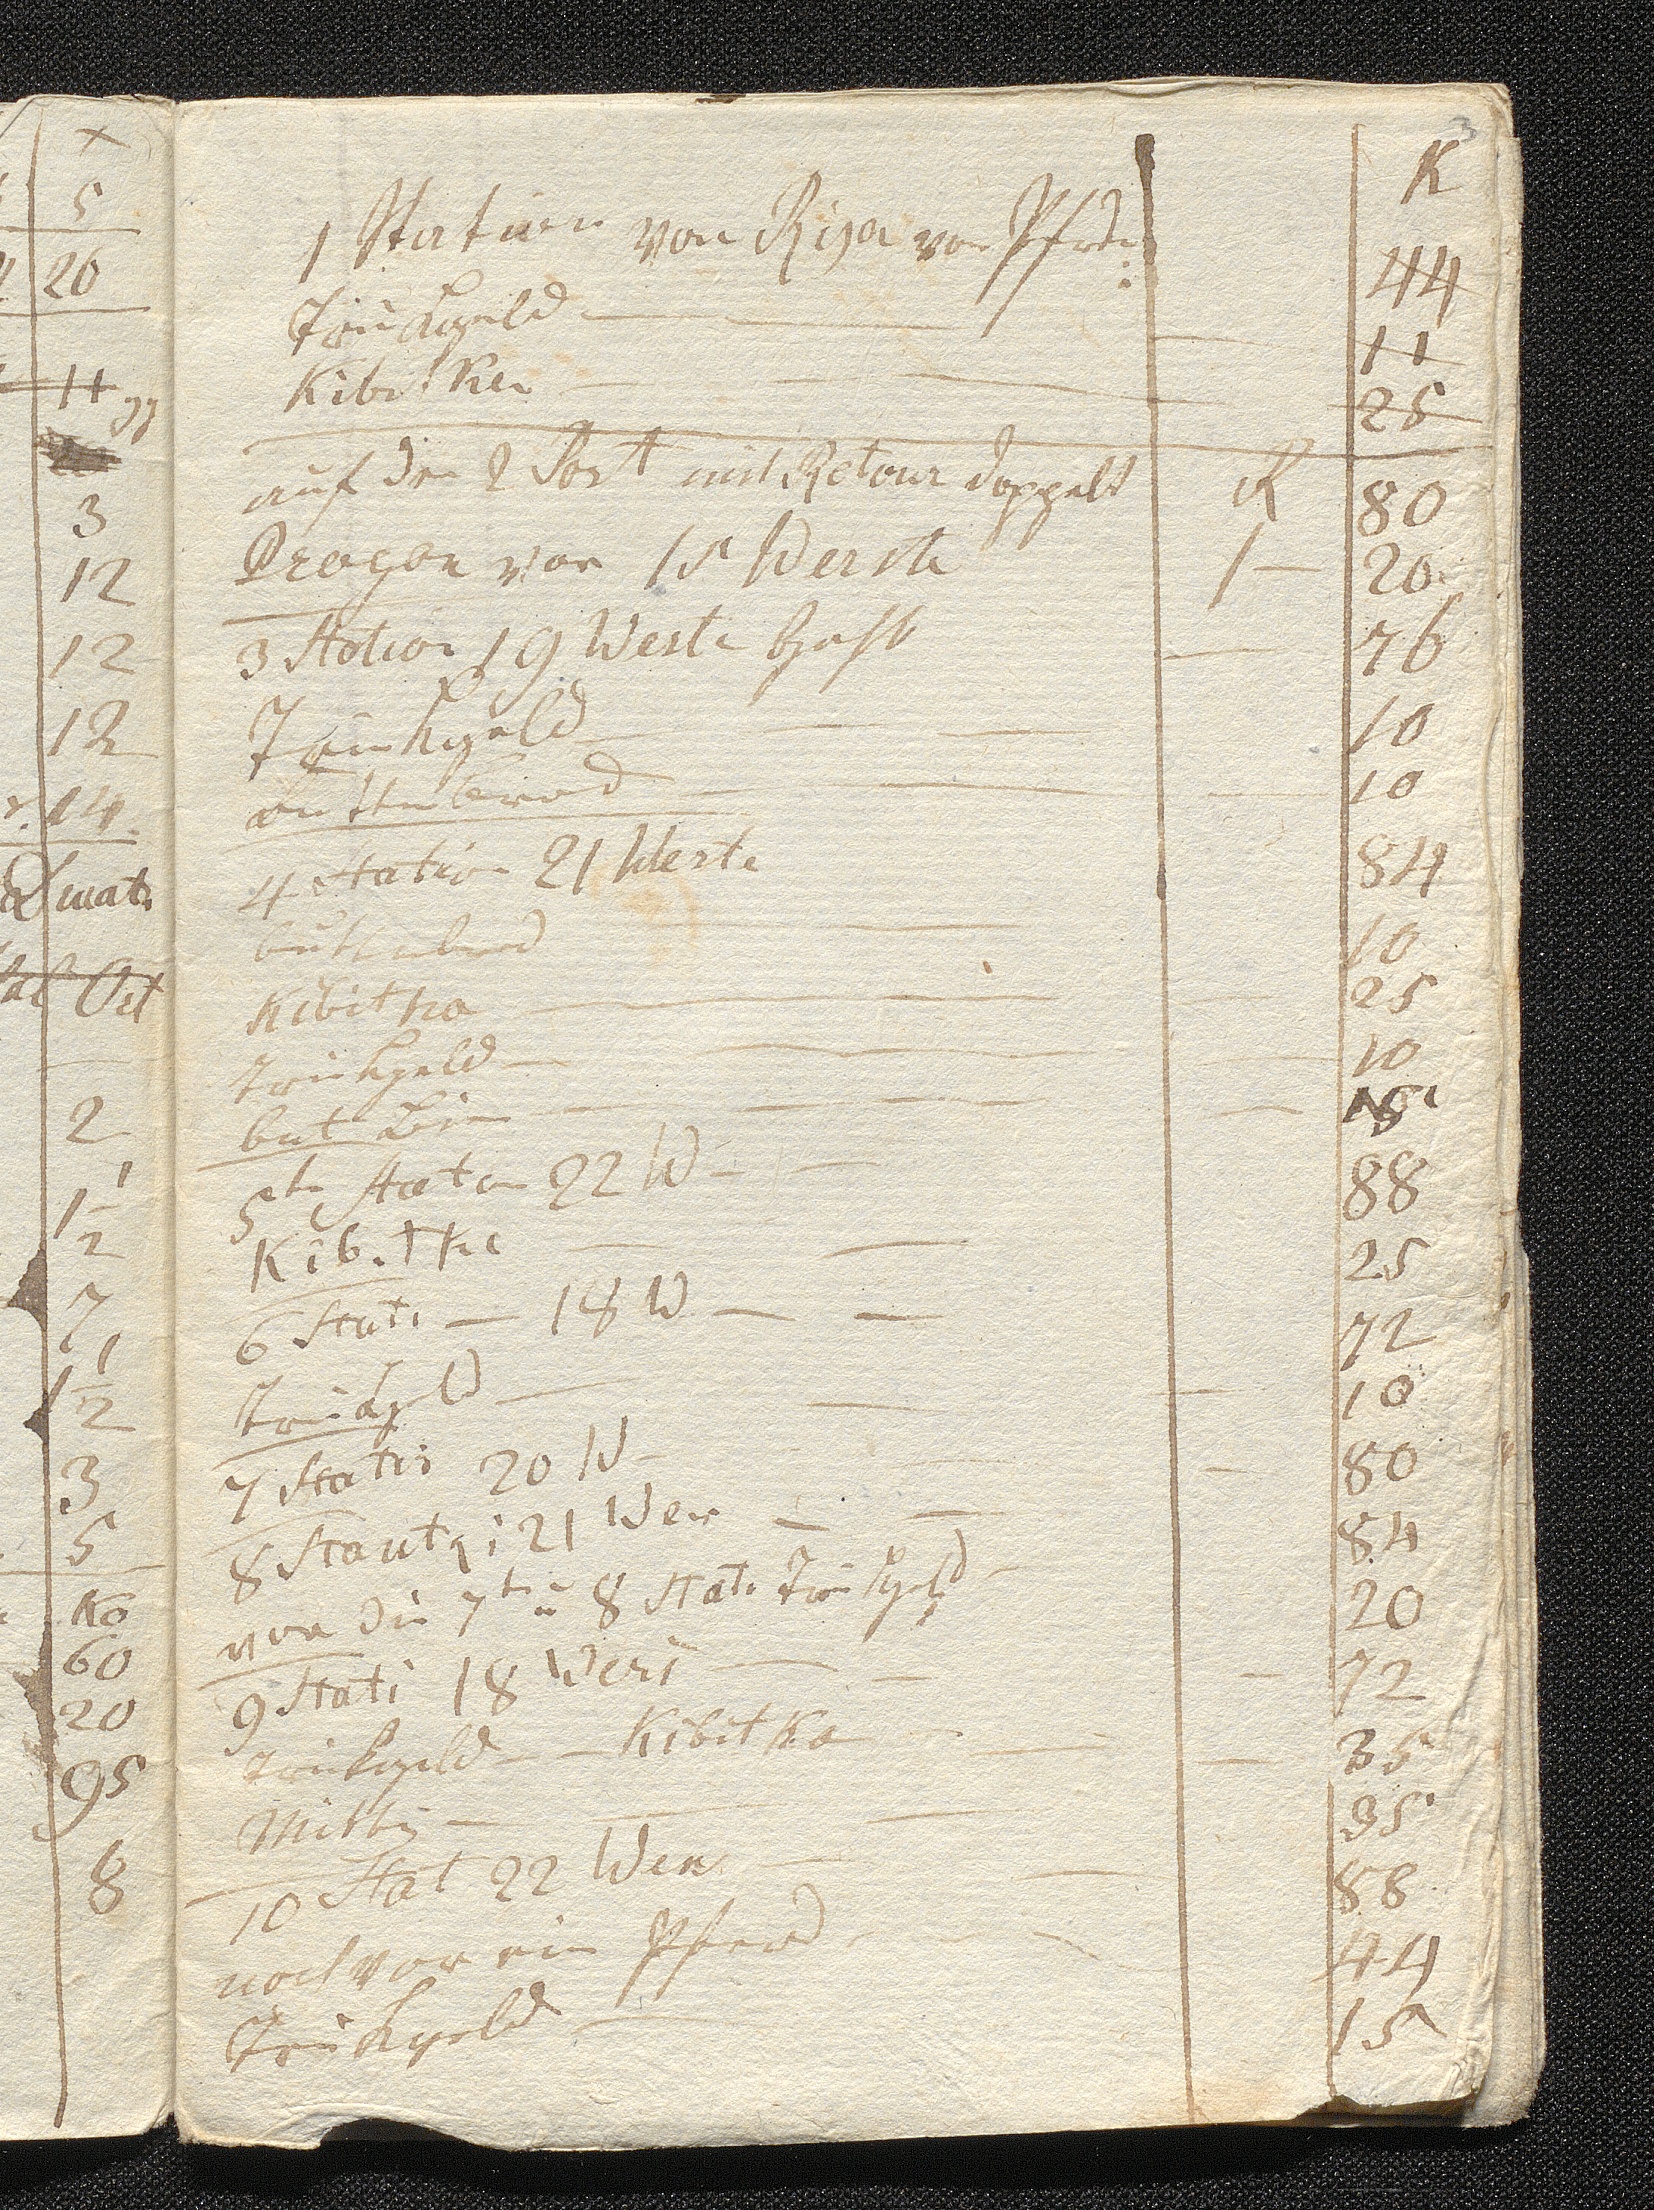 ×
5
20
11 gg
3
12
12
12
14
mat
Ort
2
1 1/2
7
1 1/2
3
5
Ko
60
20
95
8
3
K
1 Station von Riga vor Pferde 44
Trinckgeld — 11
Kibitken — 25
auf den 2 Post mit Retour doppelt R 80
Progon vor 15 Werste 1 — 20
3 Station 19 Werste — 76
Trinkgeld — 10
butterbrod — 10
4 Station 21 Werste 84
butterbrod — 10
Kibitka — 25
Trinkgeld — 10
15
5te Staton 22 W — 88
Kibitke — 25
6 Stati — 18 W — 72
Trinckgeld — 10
7 Stati 20 W — 80
8 Stati 21 Wer — 84
vor die 7te u 8 Stati Trinkgeld — 20
9 Stati 18 Wers — 72
Trinkgeld — Kibitka — 35
Mittag — 35
10 Stat 22 Wer — 88
noch vor ein Pferd — 44
Trinkgeld — 15